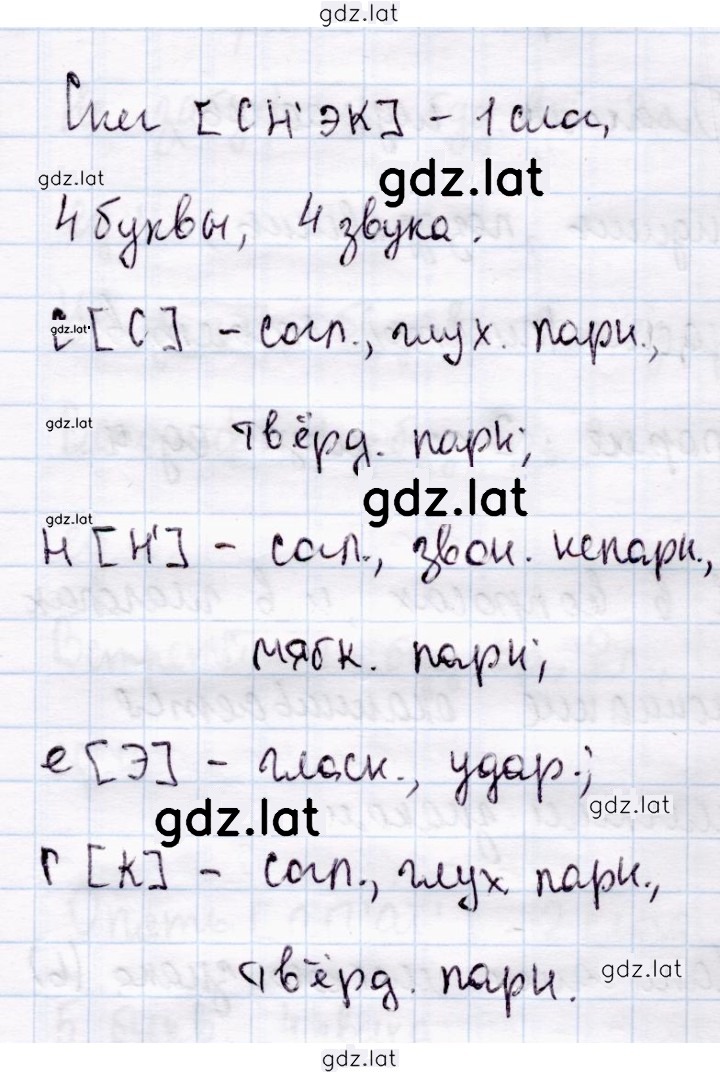 gdz.lat
Снег [СН'ЭК] - 1 слог,
gdz.lat
gdz.lat
4 буквы, 4 звука.
с [С] - согл., глух. парн.,
gdz.lat
твёрд. парн;
gdz.lat
gdz.lat
gdz.lat
н [Н'] - согл., звон. непарн.,
мягк. парн;
е [Э] - гласн., удар.;
gdz.lat
gdz.lat
г [К] - согл., глух. парн.,
твёрд. парн.
gdz.lat
gdz.lat